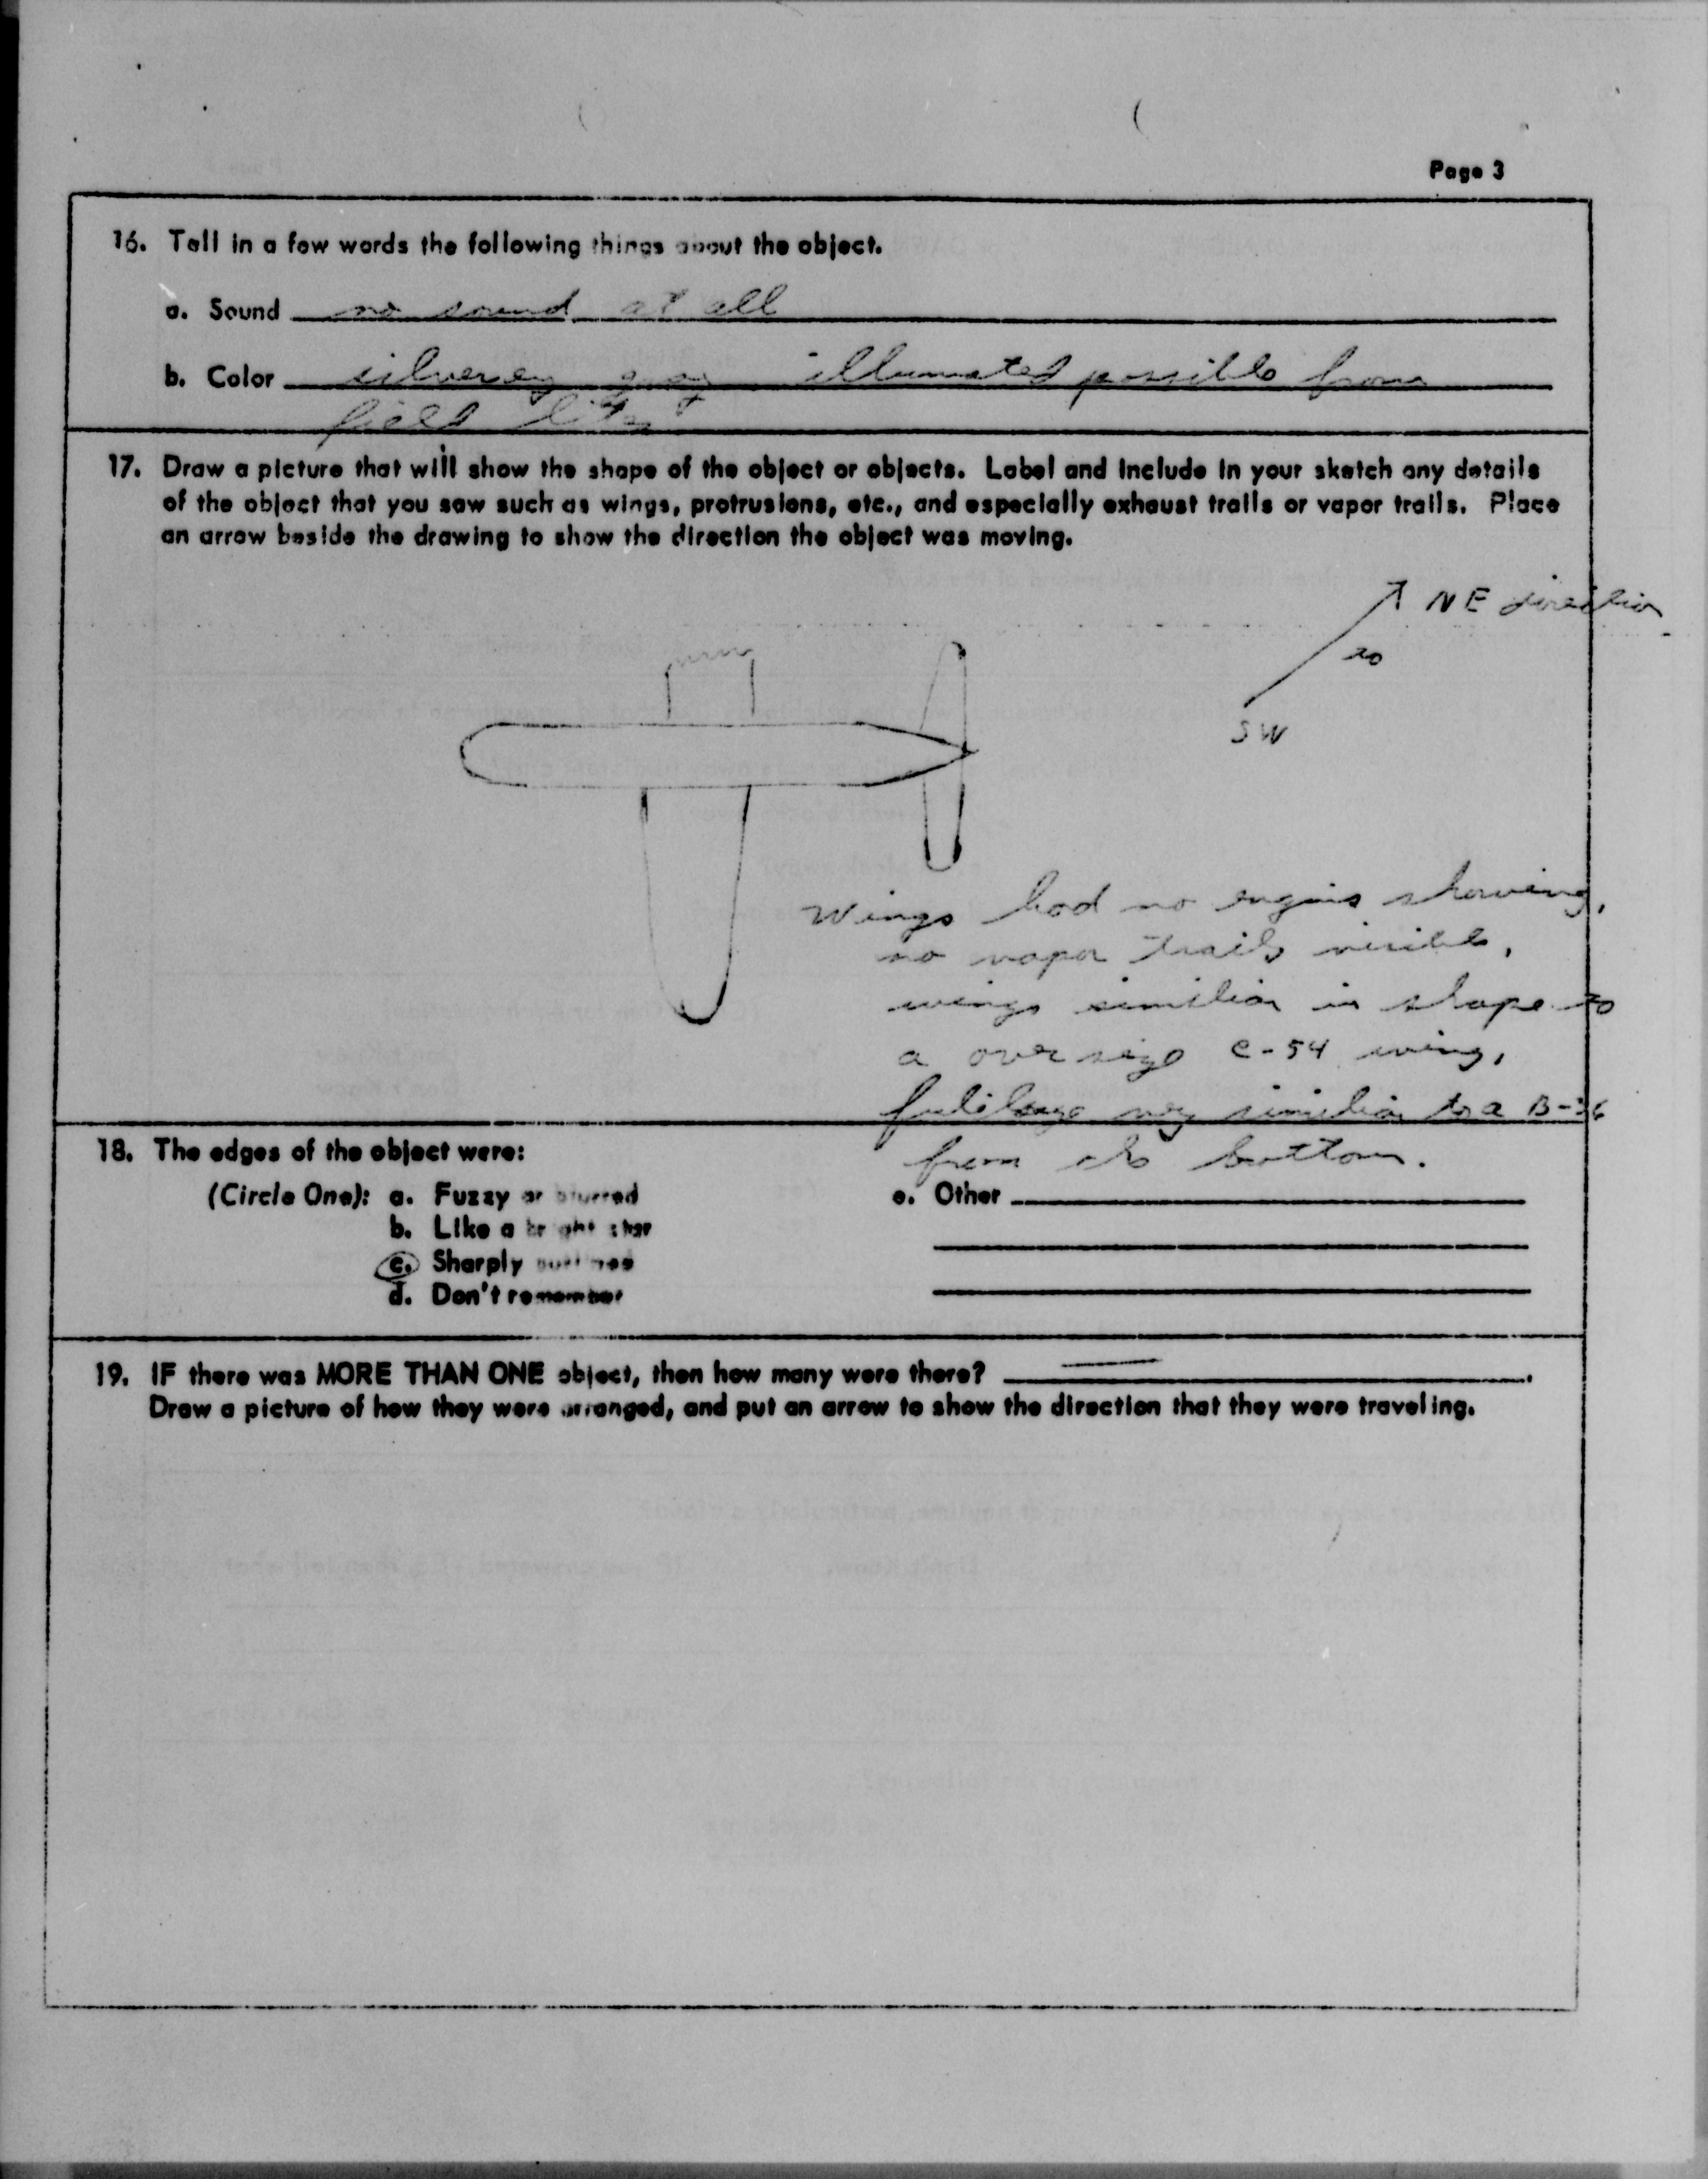 Page 3
16. Tell in a few words the following things about the object.
a. Sound no sound at all
b. Color silverey gray illumated possible from
field lites
17. Draw a picture that will show the shape of the object or objects. Label and include in your sketch any details
of the object that you saw such as wings, protrusions, etc., and especially exhaust trails or vapor trails. Place
an arrow beside the drawing to show the direction the object was moving.
NE direction
to
SW
Wings had no engins showing,
no vapor trails visible,
wings similiar in shape to
a over size C-54 wing,
fuselage very similiar to a B-36
from the bottom.
18. The edges of the object were:
(Circle One): a. Fuzzy or blurred
b. Like a bright star
c. Sharply outlined
d. Don't remember
e. Other
19. IF there was MORE THAN ONE object, then how many were there?
Draw a picture of how they were arranged, and put an arrow to show the direction that they were traveling.